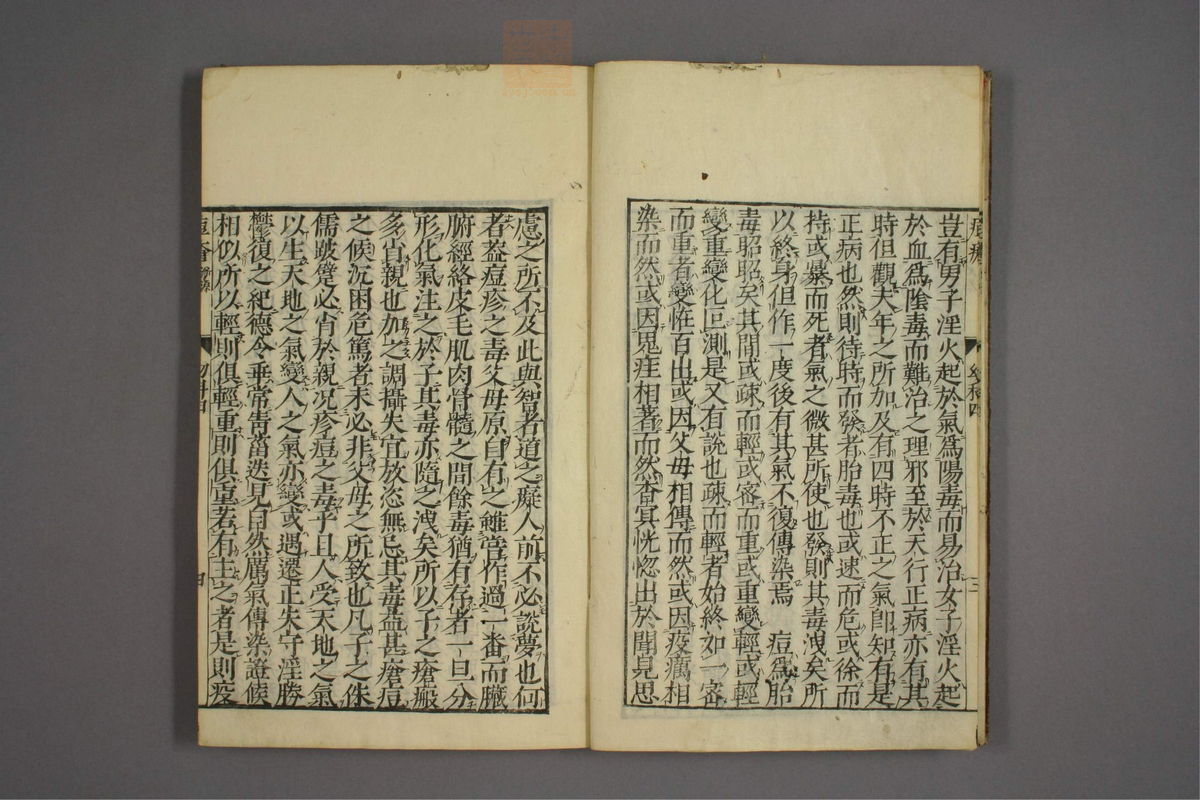 豈有男子淫火起於氣爲陽毒而易治女子淫火起
於血爲陰毒而難治之理邪至於天行正病亦有其
時但觀大年之所加及有四時不正之氣卽知有是
正病也然則待時而發者胎毒也或速而危或徐而
持或暴而死者氣之微甚所使也發則其毒洩矣所
以終身但作一度後有其氣不復傳染焉　痘爲胎
毒昭昭矣其間或疎而輕或密而重或重變輕或輕
變重變化叵測是又有說也疎而輕者始終如一密
而重者變恠百出或因父母相傳而然或因疫癘相
染而然或因鬼疰相著而然杳冥恍惚出於聞見思
慮之所不及此與智者道之癡人前不必說夢也何
者蓋痘疹之毒父母原自有之雖嘗作過一番而臟
腑經絡皮毛肌肉骨髓之間餘毒猶有存者一旦分
形化氣注之於子其毒亦隨之洩矣所以子之瘡瘢
多肖親也加之調攝失宜放恣無忌其毒益甚瘡痘
之候沉困危篤者未必非父母之所致也凡子之侏
儒跛躄必肖於親况疹痘之毒乎且人受天地之氣
以生天地之氣變人之氣亦變或遇遷正失守淫勝
欝復之紀德令乖常眚當迭見自然厲氣傳染證候
相似所以輕則俱輕重則俱重若有主之者是則疫